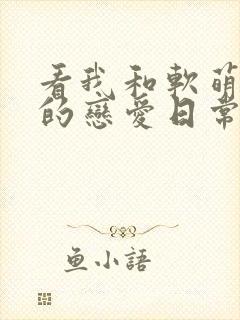 看我和軟萌
的戀愛日常
魚小語